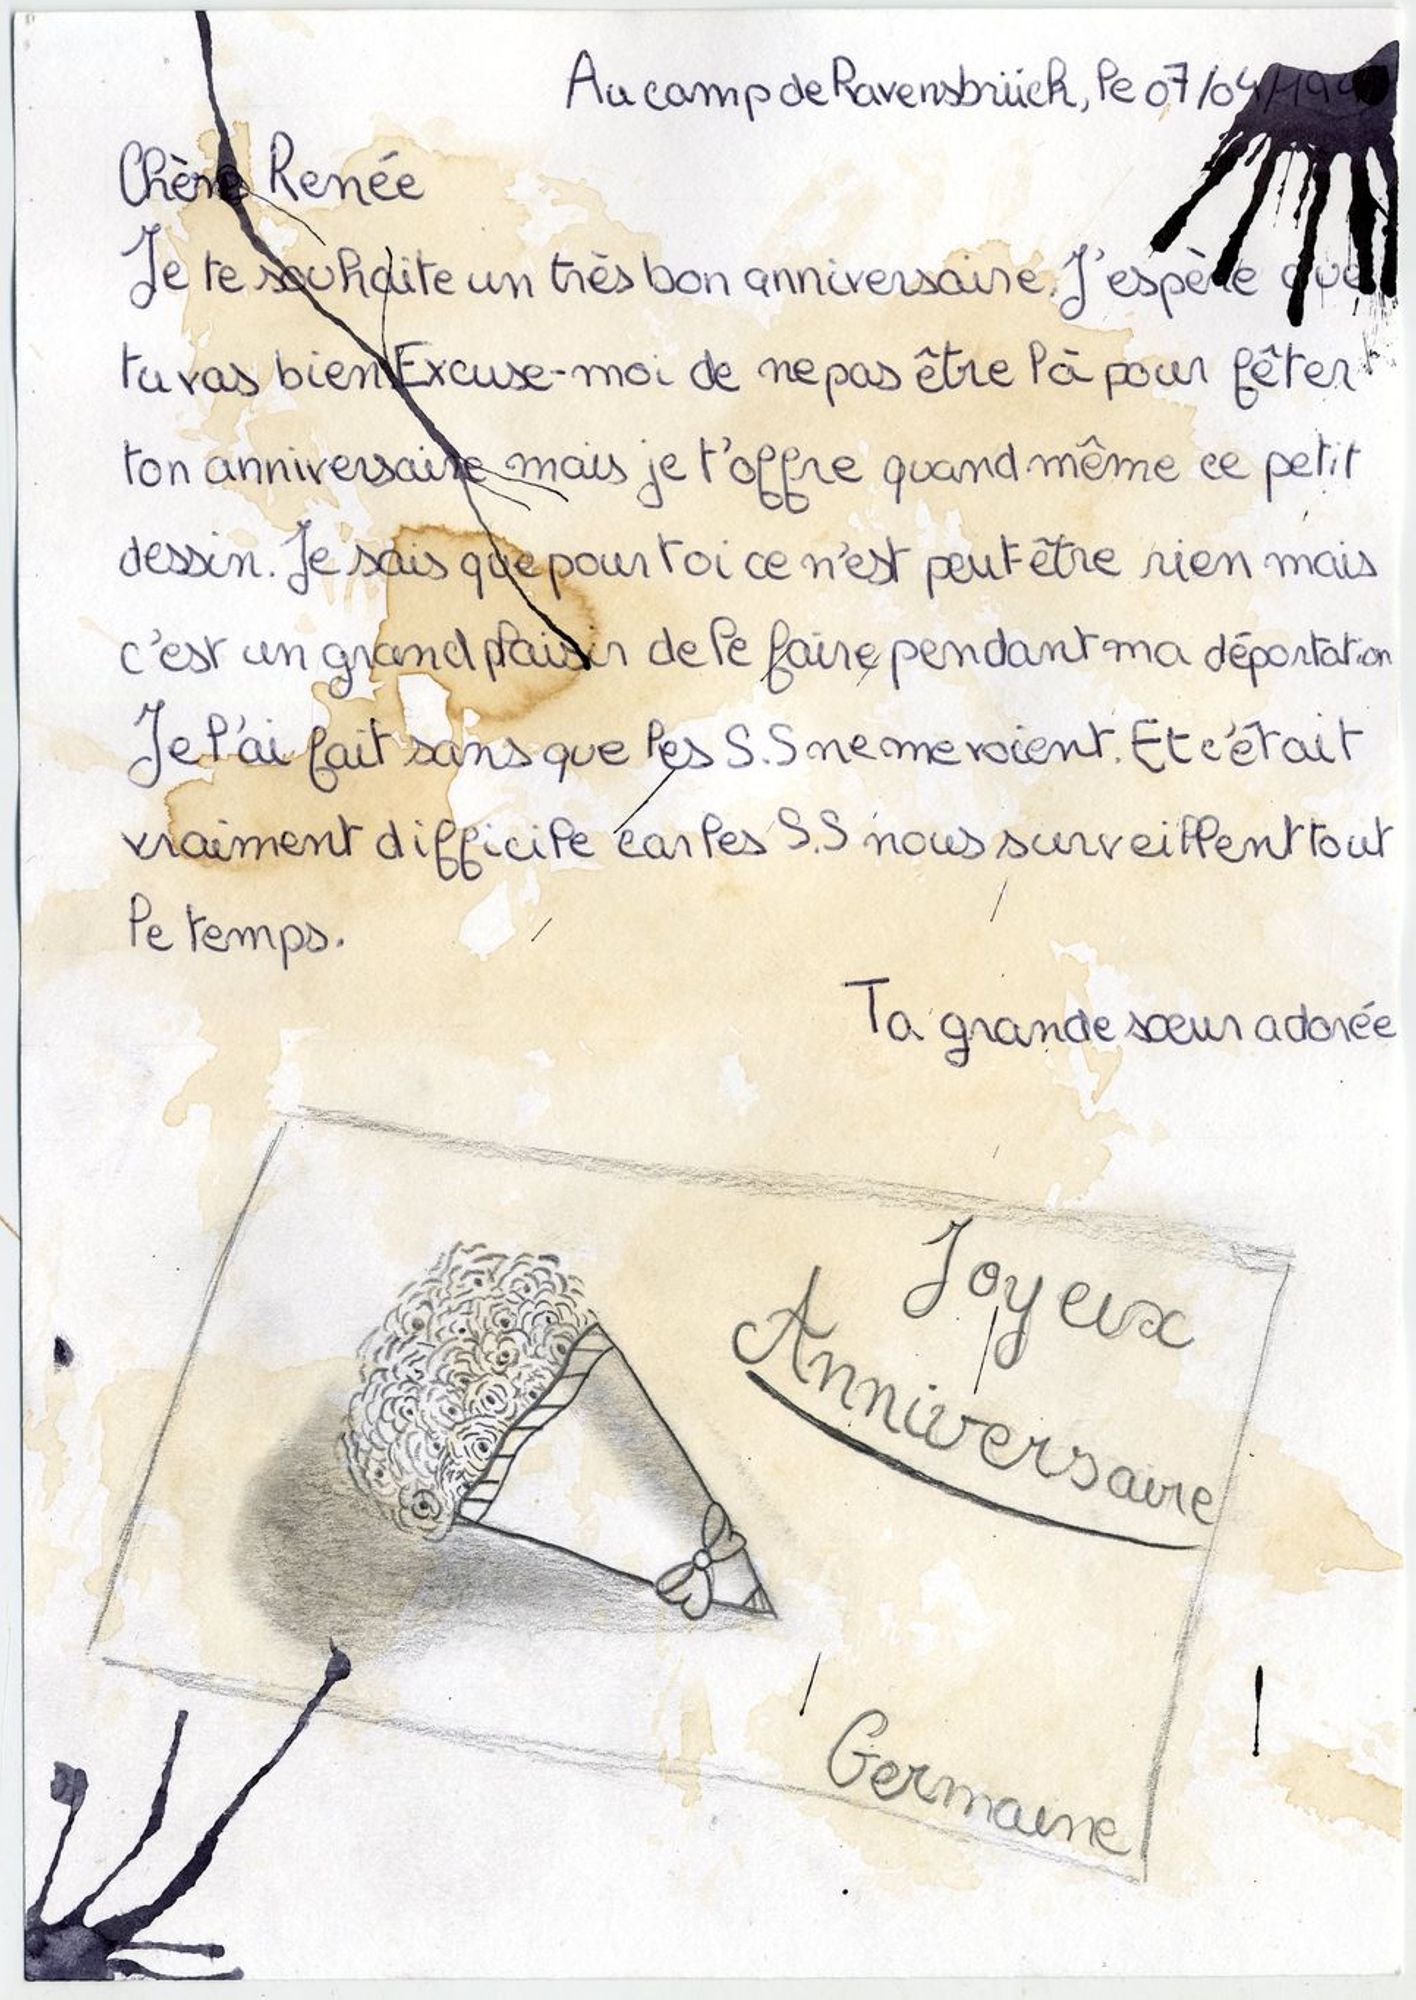 Au camp de Ravensbrück, le 07/04/19
Chère Renée
Je te souhaite un très bon anniversaire. J'espère que
tu vas bien Excuse-moi de ne pas être là pour fêter
ton anniversaire mais je t'offre quand même ce petit
dessin. Je sais que pour toi ce n'est peut-être rien mais
c'est un grand plaisir de le faire pendant ma déportation
Je l'ai fait sans que les S.S ne me voient. Et c'était
vraiment difficile car les S.S nous surveillent tout
le temps.
Ta grande sœur adorée
Joyeux
Anniversaire
Germaine